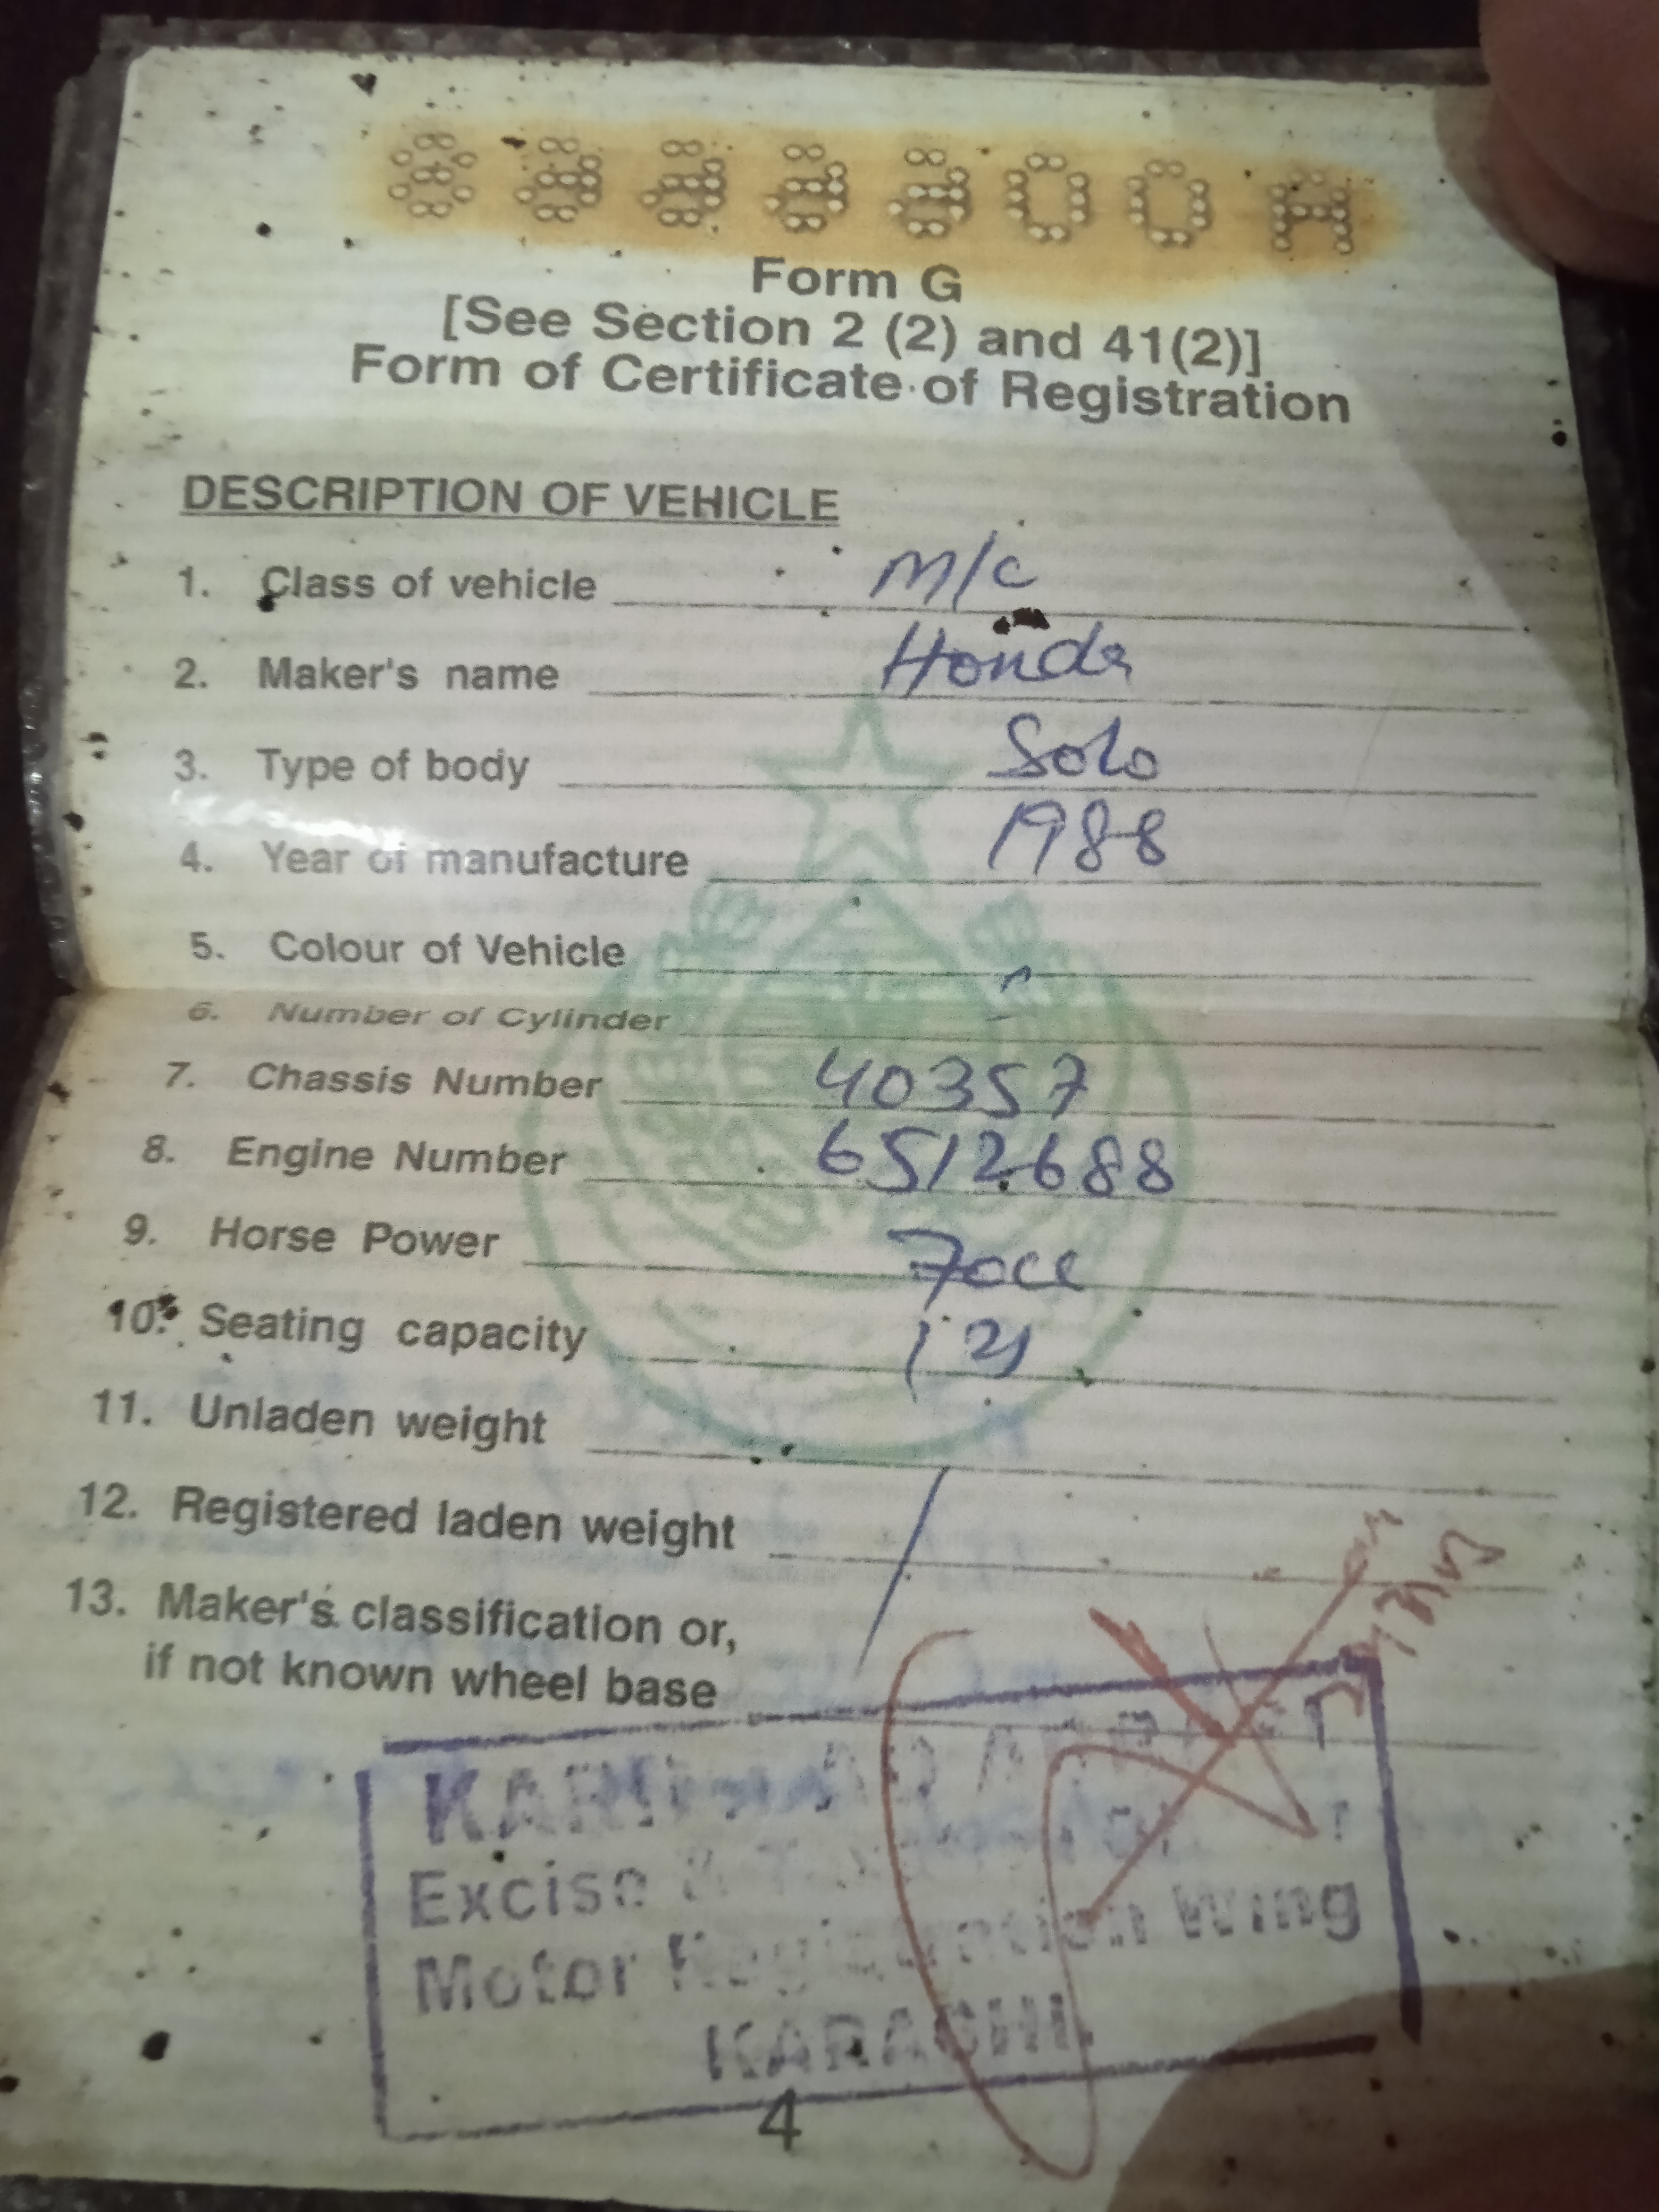 Form G
[See Section 2 (2) and 41(2)]
Form of Certificate of Registration
DESCRIPTION OF VEHICLE
1. Class of vehicle M/C
2. Maker's name Honda
3. Type of body Solo
4. Year of manufacture 1988
5. Colour of Vehicle
6. Number of Cylinder
7. Chassis Number 40357
8. Engine Number 6512688
9. Horse Power 70cc
10. Seating capacity
11. Unladen weight
12. Registered laden weight
13. Maker's classification or,
if not known wheel base
Excise &
Motor Registration Wing
KARACHI
4